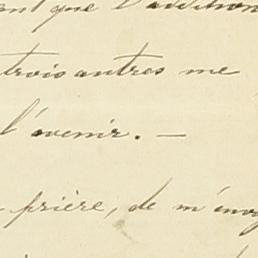 que l'addition
trois autres me
l'avenir. —
prière, de m'envoy